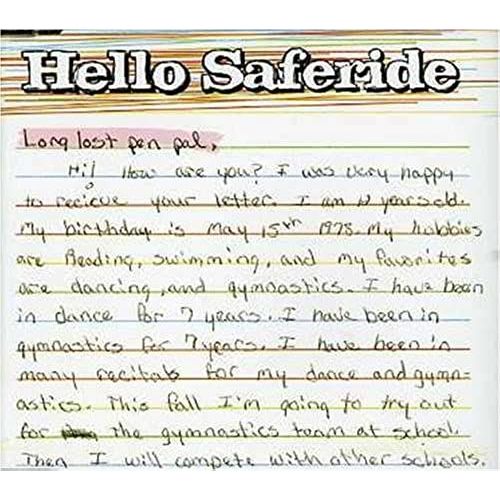 Hello Saferide
Long lost pen pal,
Hi! How are you? I was very happy
to recieve your letter. I am 12 years old.
My birthday is May 15th 1978. My hobbies
are Reading, swimming, and my favorites
are dancing, and gymnastics. I have been
in dance for 7 years. I have been in
gymnastics for 7 years. I have been in
many recitals for my dance and gymn=
astics. This fall I'm going to try out
for the gymnastics team at school.
Then I will compete with other schools.